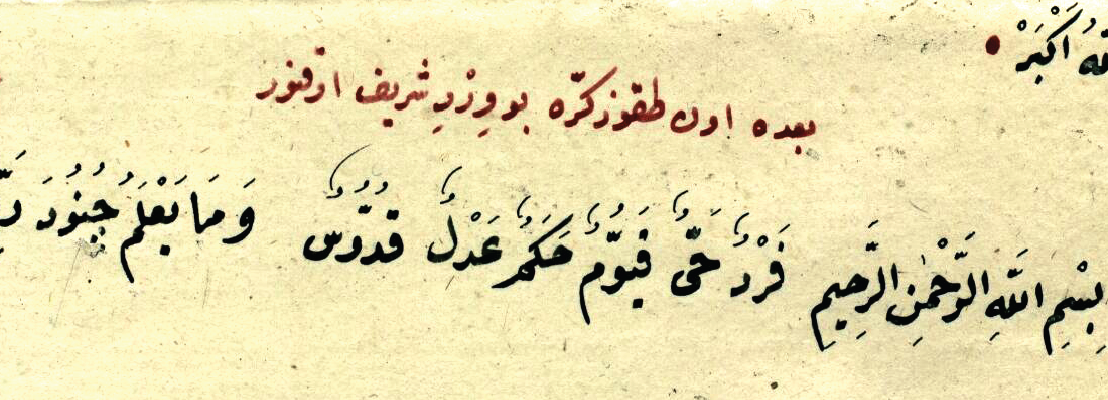 اَكْبَرْ
بعده اون طقوز كرّه بو وِرْدِ شريف اوقنور
بِسْمِ اللّٰهِ الرَّحْمٰنِ الرَّحِيمِ فَرْدٌ حَىٌّ قَيُّومٌ حَكَمٌ عَدْلٌ قُدُّوسٌ وَمَا يَعْلَمُ جُنُودَ